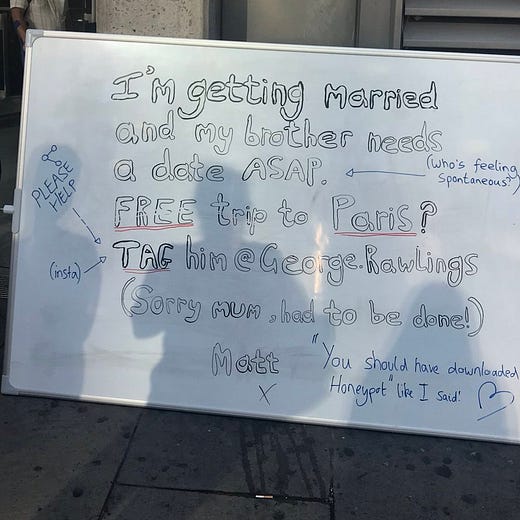 I'm getting married
and my brother needs
a date ASAP.
(who's feeling
spontaneous?)
PLEASE
HELP
FREE trip to Paris?
TAG him @George.Rawlings
(insta)
(Sorry mum, had to be done!)
Matt
x
"You should have downloaded
Honeypot" like I said!